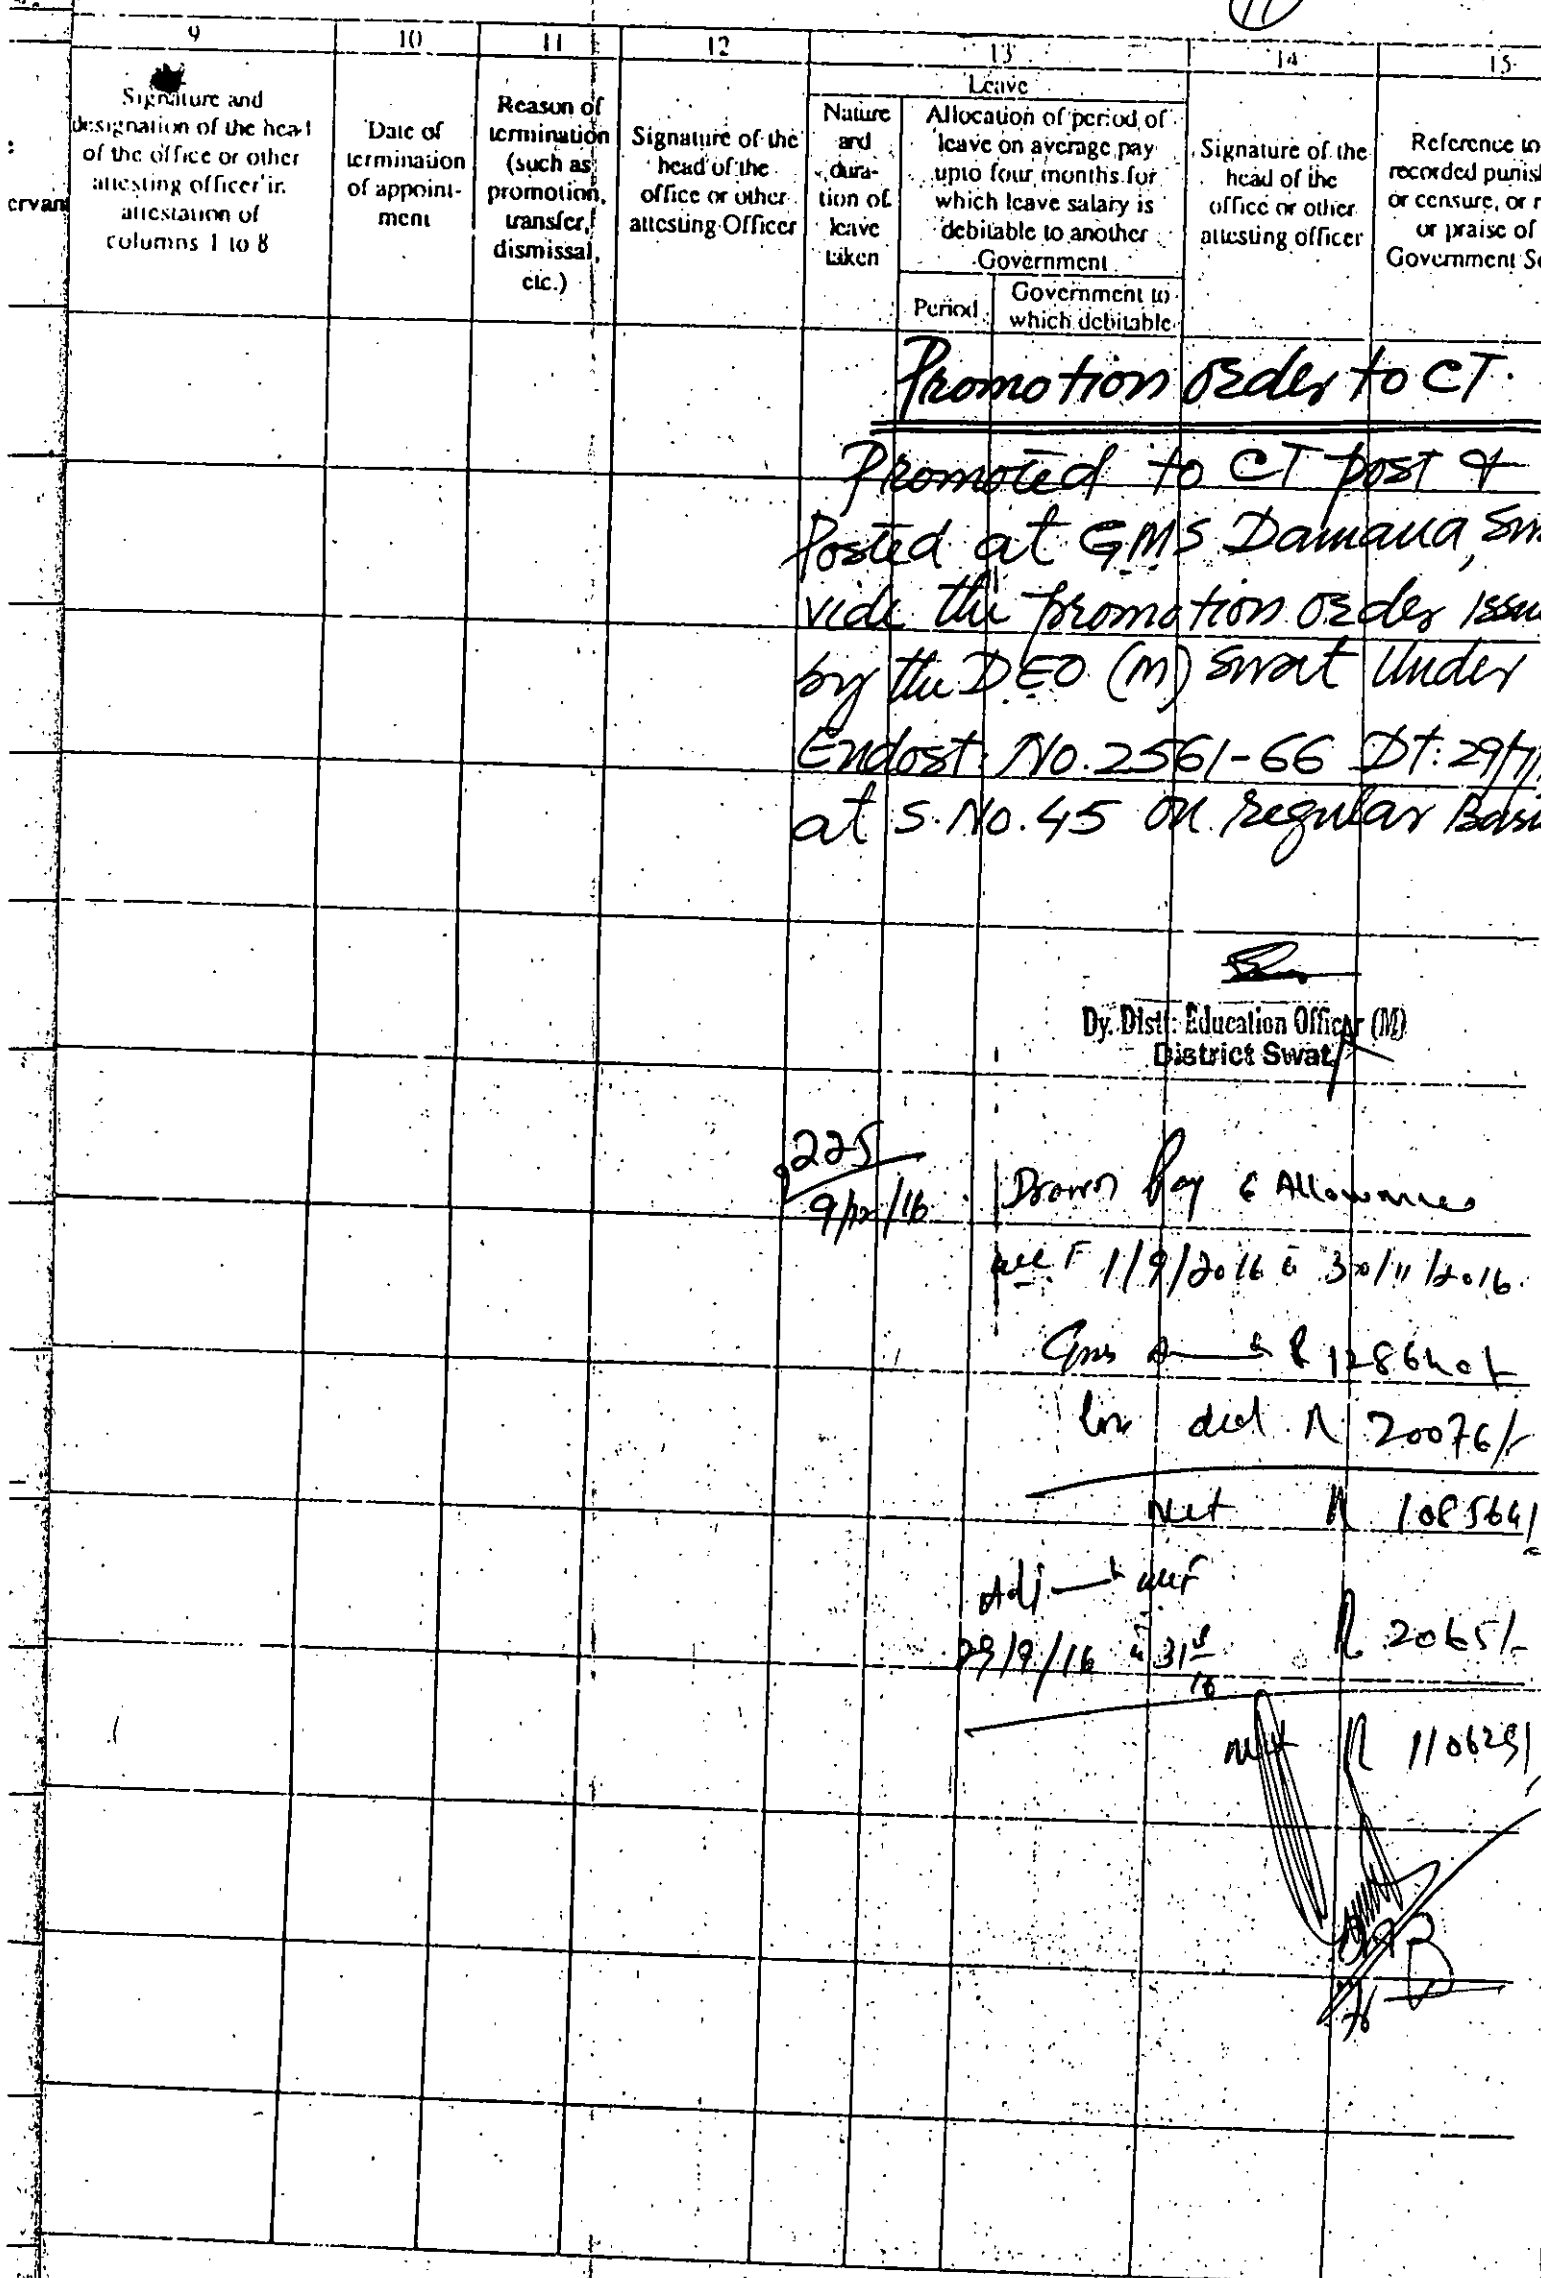 11
9 10 11 12 13 14 15
Signature and designation of the head of the office or other attesting officer in attestation of columns 1 to 8
Date of termination of appoint-ment
Reason of termination (such as promotion, transfer, dismissal, etc.)
Signature of the head of the office or other attesting Officer
Leave
Nature and dura-tion of leave taken
Allocation of period of leave on average pay upto four months for which leave salary is debitable to another Government
Period
Government to which debitable
Signature of the head of the office or other attesting officer
Reference to
recorded punis
or censure, or r
or praise of
Government Se
ervant
Promotion order to CT.
Promoted to CT post &
Posted at GMS Damana, Sw
vide the promotion order issu
by the DEO (M) Swat Under
Endost: No. 2561-66 Dt: 29/
at S. No. 45 on regular Basi
Dy. Distt: Education Officer (M)
District Swat
225
9/12/16
Drawn Pay & Allowances
wef 1/9/2016 to 30/11/2016.
128640/-
ded R 20076/-
Net R 108564/
Adj wef
29/9/16 31
R 2065/-
Net R 110629/